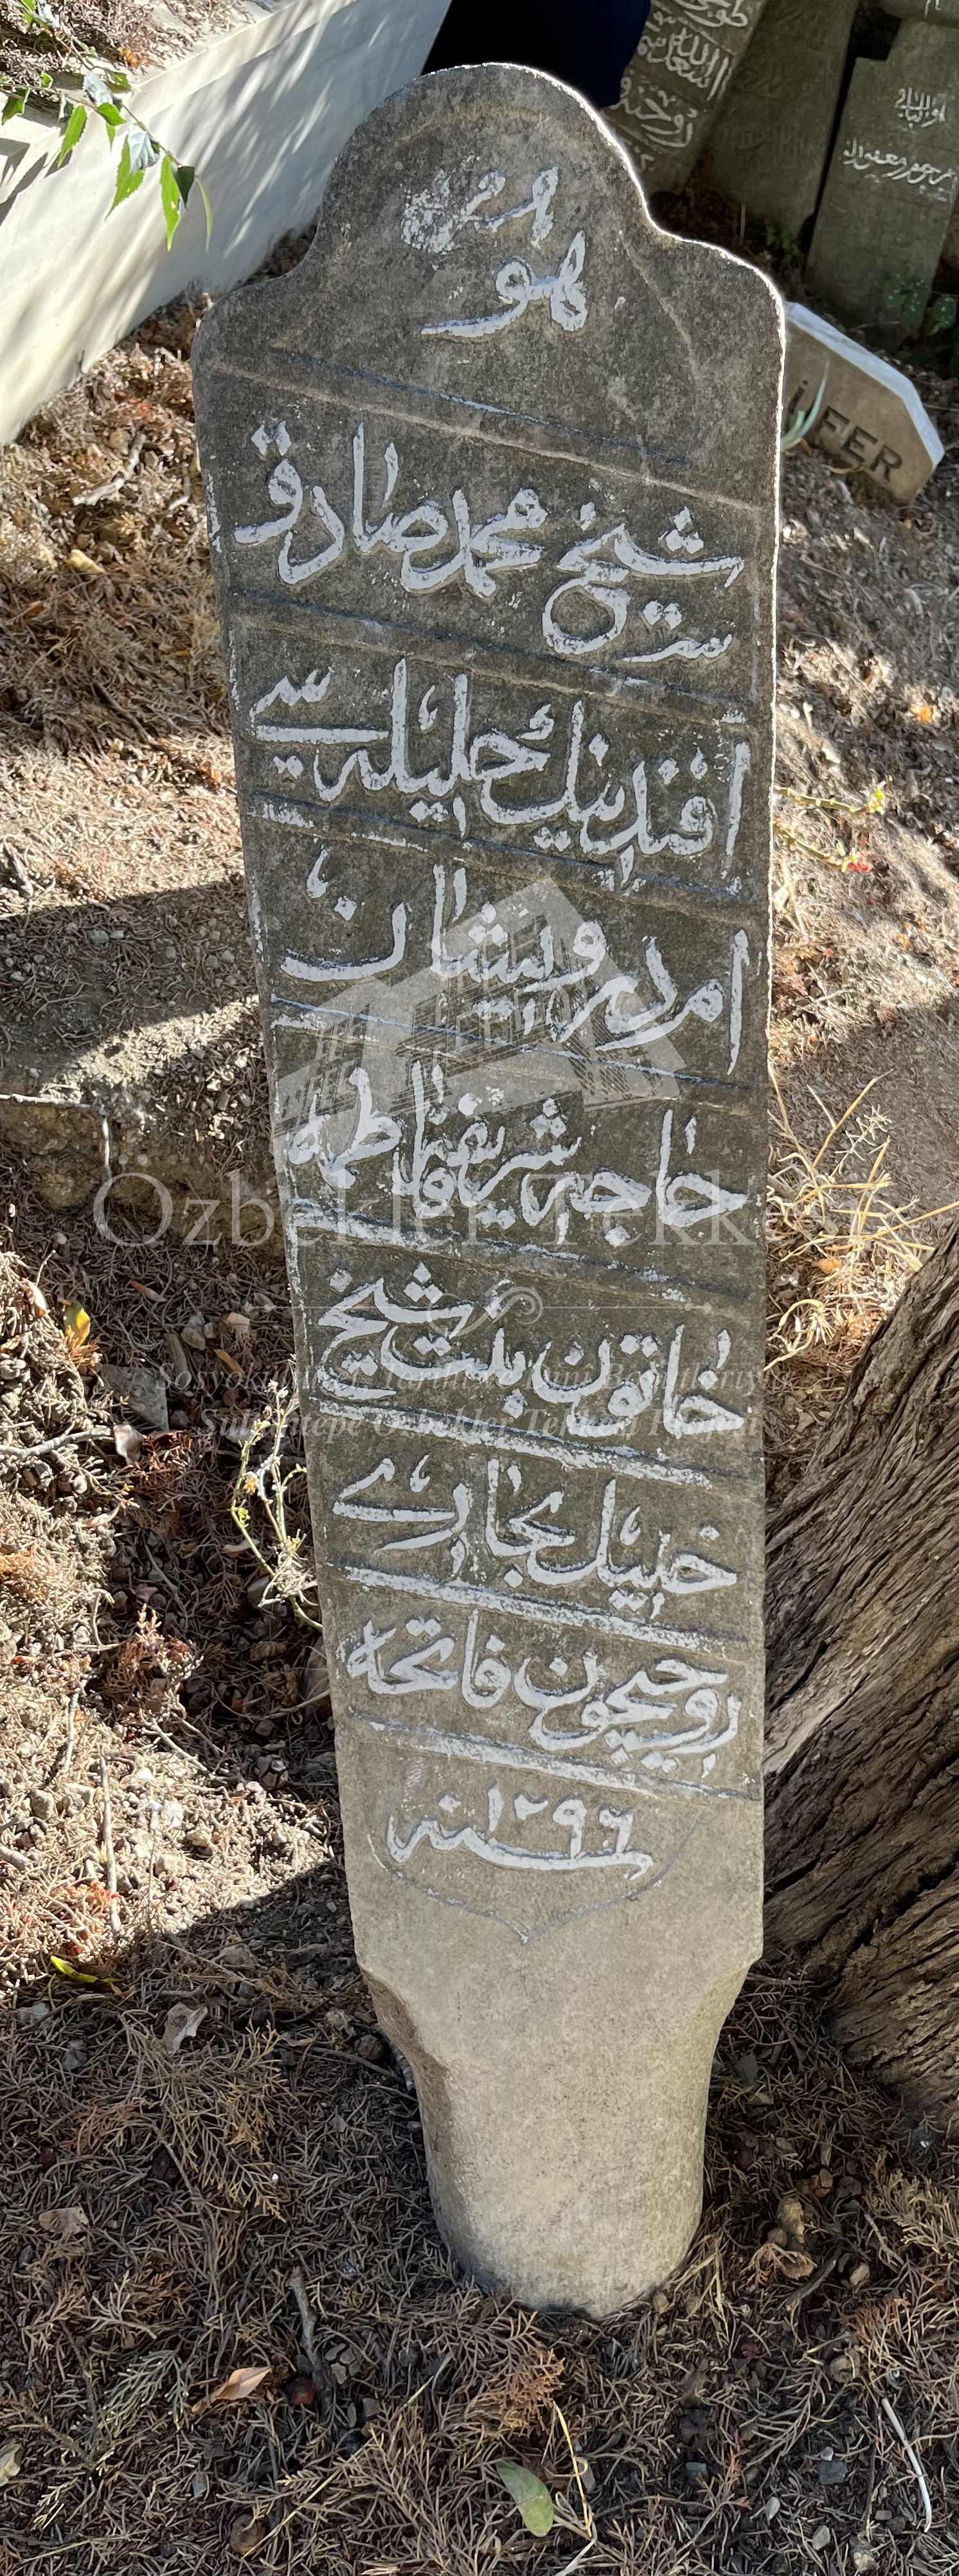 هو
شيخ محمد صادق
افندينك حليله سى
ام درويشان
حاجه شريفه فاطمه
خاتون بنت شيخ
خليل بخارى
روحيچون فاتحه
سنه ١٢٩٦
ÜFER
Özbekler Tekkesi